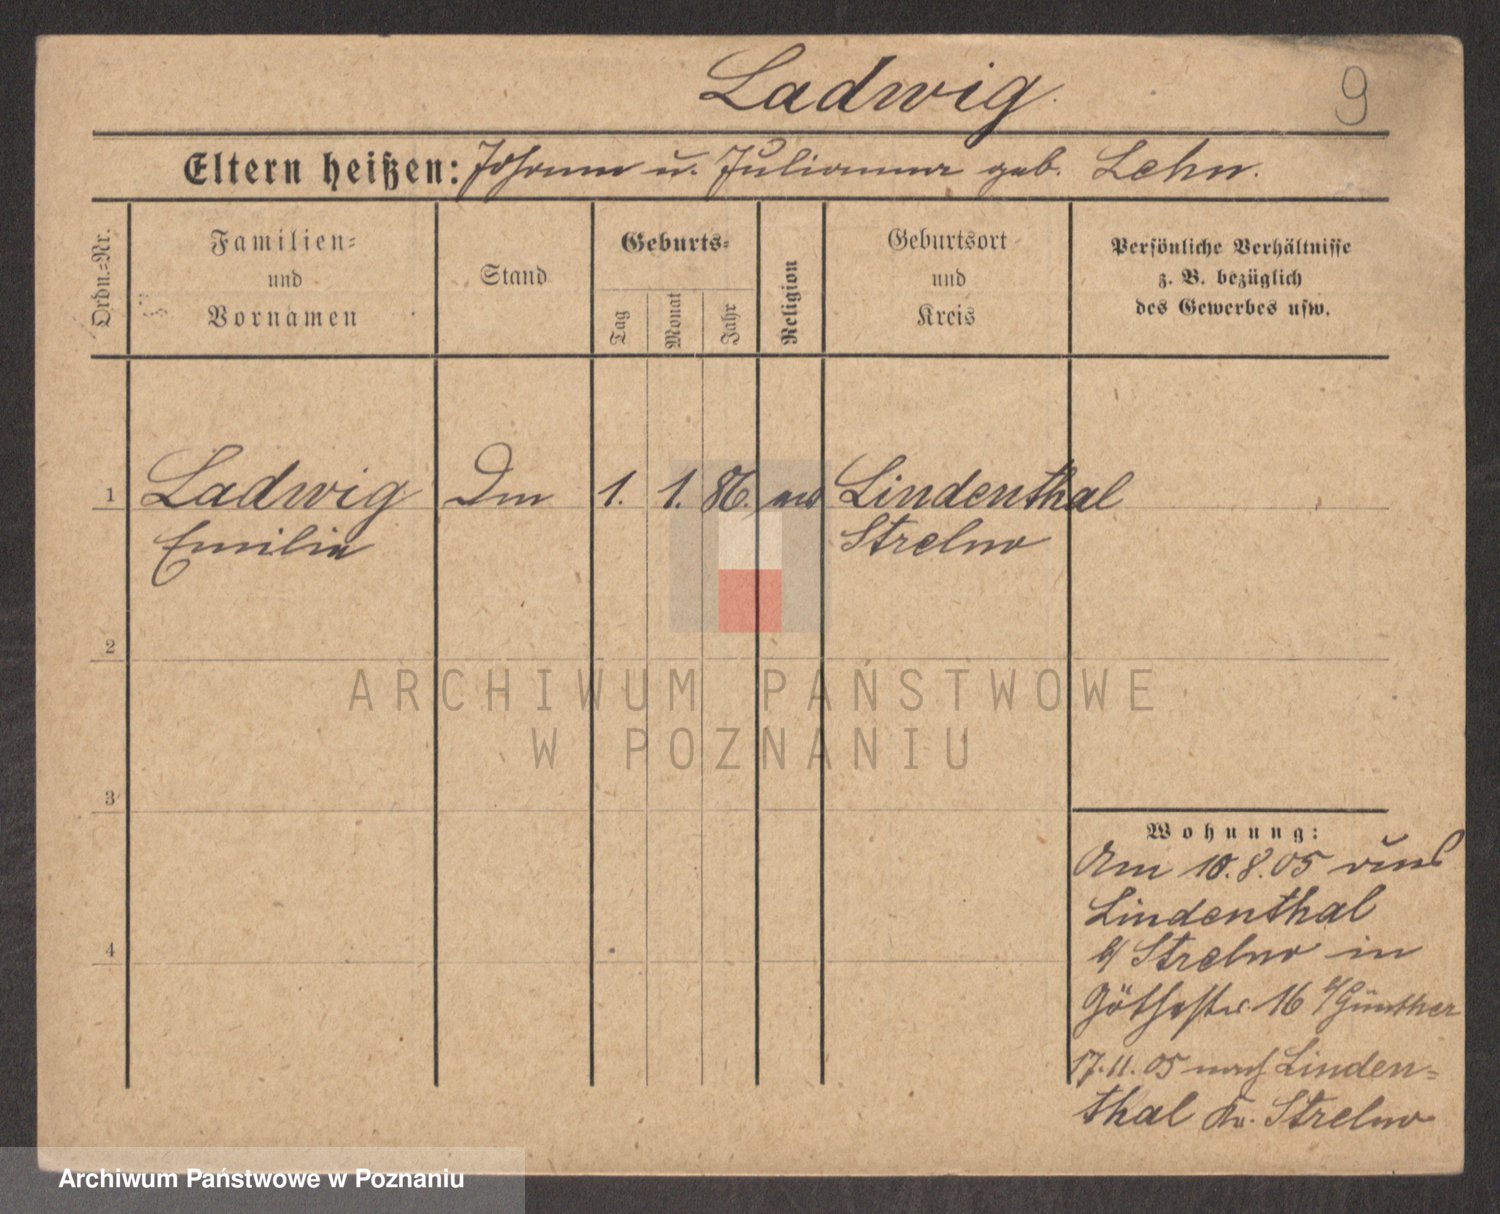 Ladwig.
9
Eltern heißen: Johann u. Julianna geb. Lehn.
Ordn.=Nr.
Familien=
und
Vornamen
Stand
Geburts=
Tag
Monat
Jahr
Religion
Geburtsort
und
Kreis
Persönliche Verhältnisse
z. B. bezüglich
des Gewerbes usw.
1 Ladwig 1. 1. 86. Lindenthal
Emilie Strelno
2
ARCHIWUM PAŃSTWOWE
W POZNANIU
3
Wohnung:
Am 10.8.05 aus
Lindenthal
b/ Strelno in
Göthestr. 16 b/ Günther
4
17.11.05 nach Linden=
thal Kr. Strelno
Archiwum Państwowe w Poznaniu